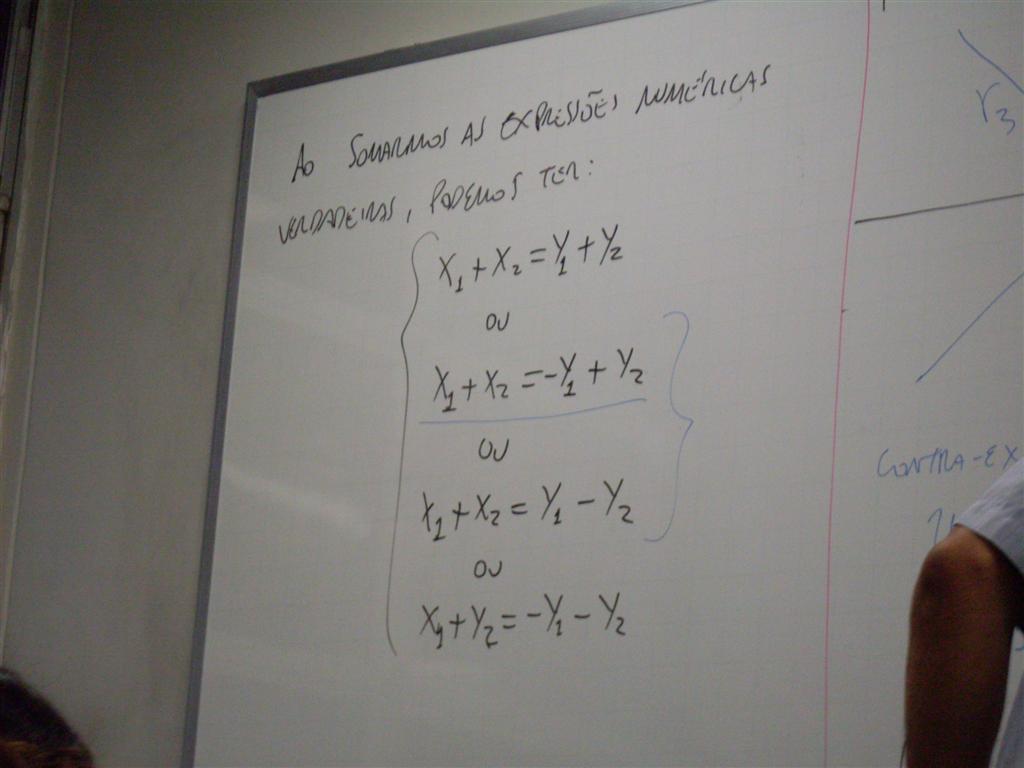 AO SOMARMOS AS EXPRESSÕES NUMÉRICAS
VERDADEIRAS, PODEMOS TER:
X₁ + X₂ = Y₁ + Y₂
OU
X₁ + X₂ = -Y₁ + Y₂
OU
X₁ + X₂ = Y₁ - Y₂
OU
X₁ + Y₂ = -Y₁ - Y₂
r₃
CONTRA-EX